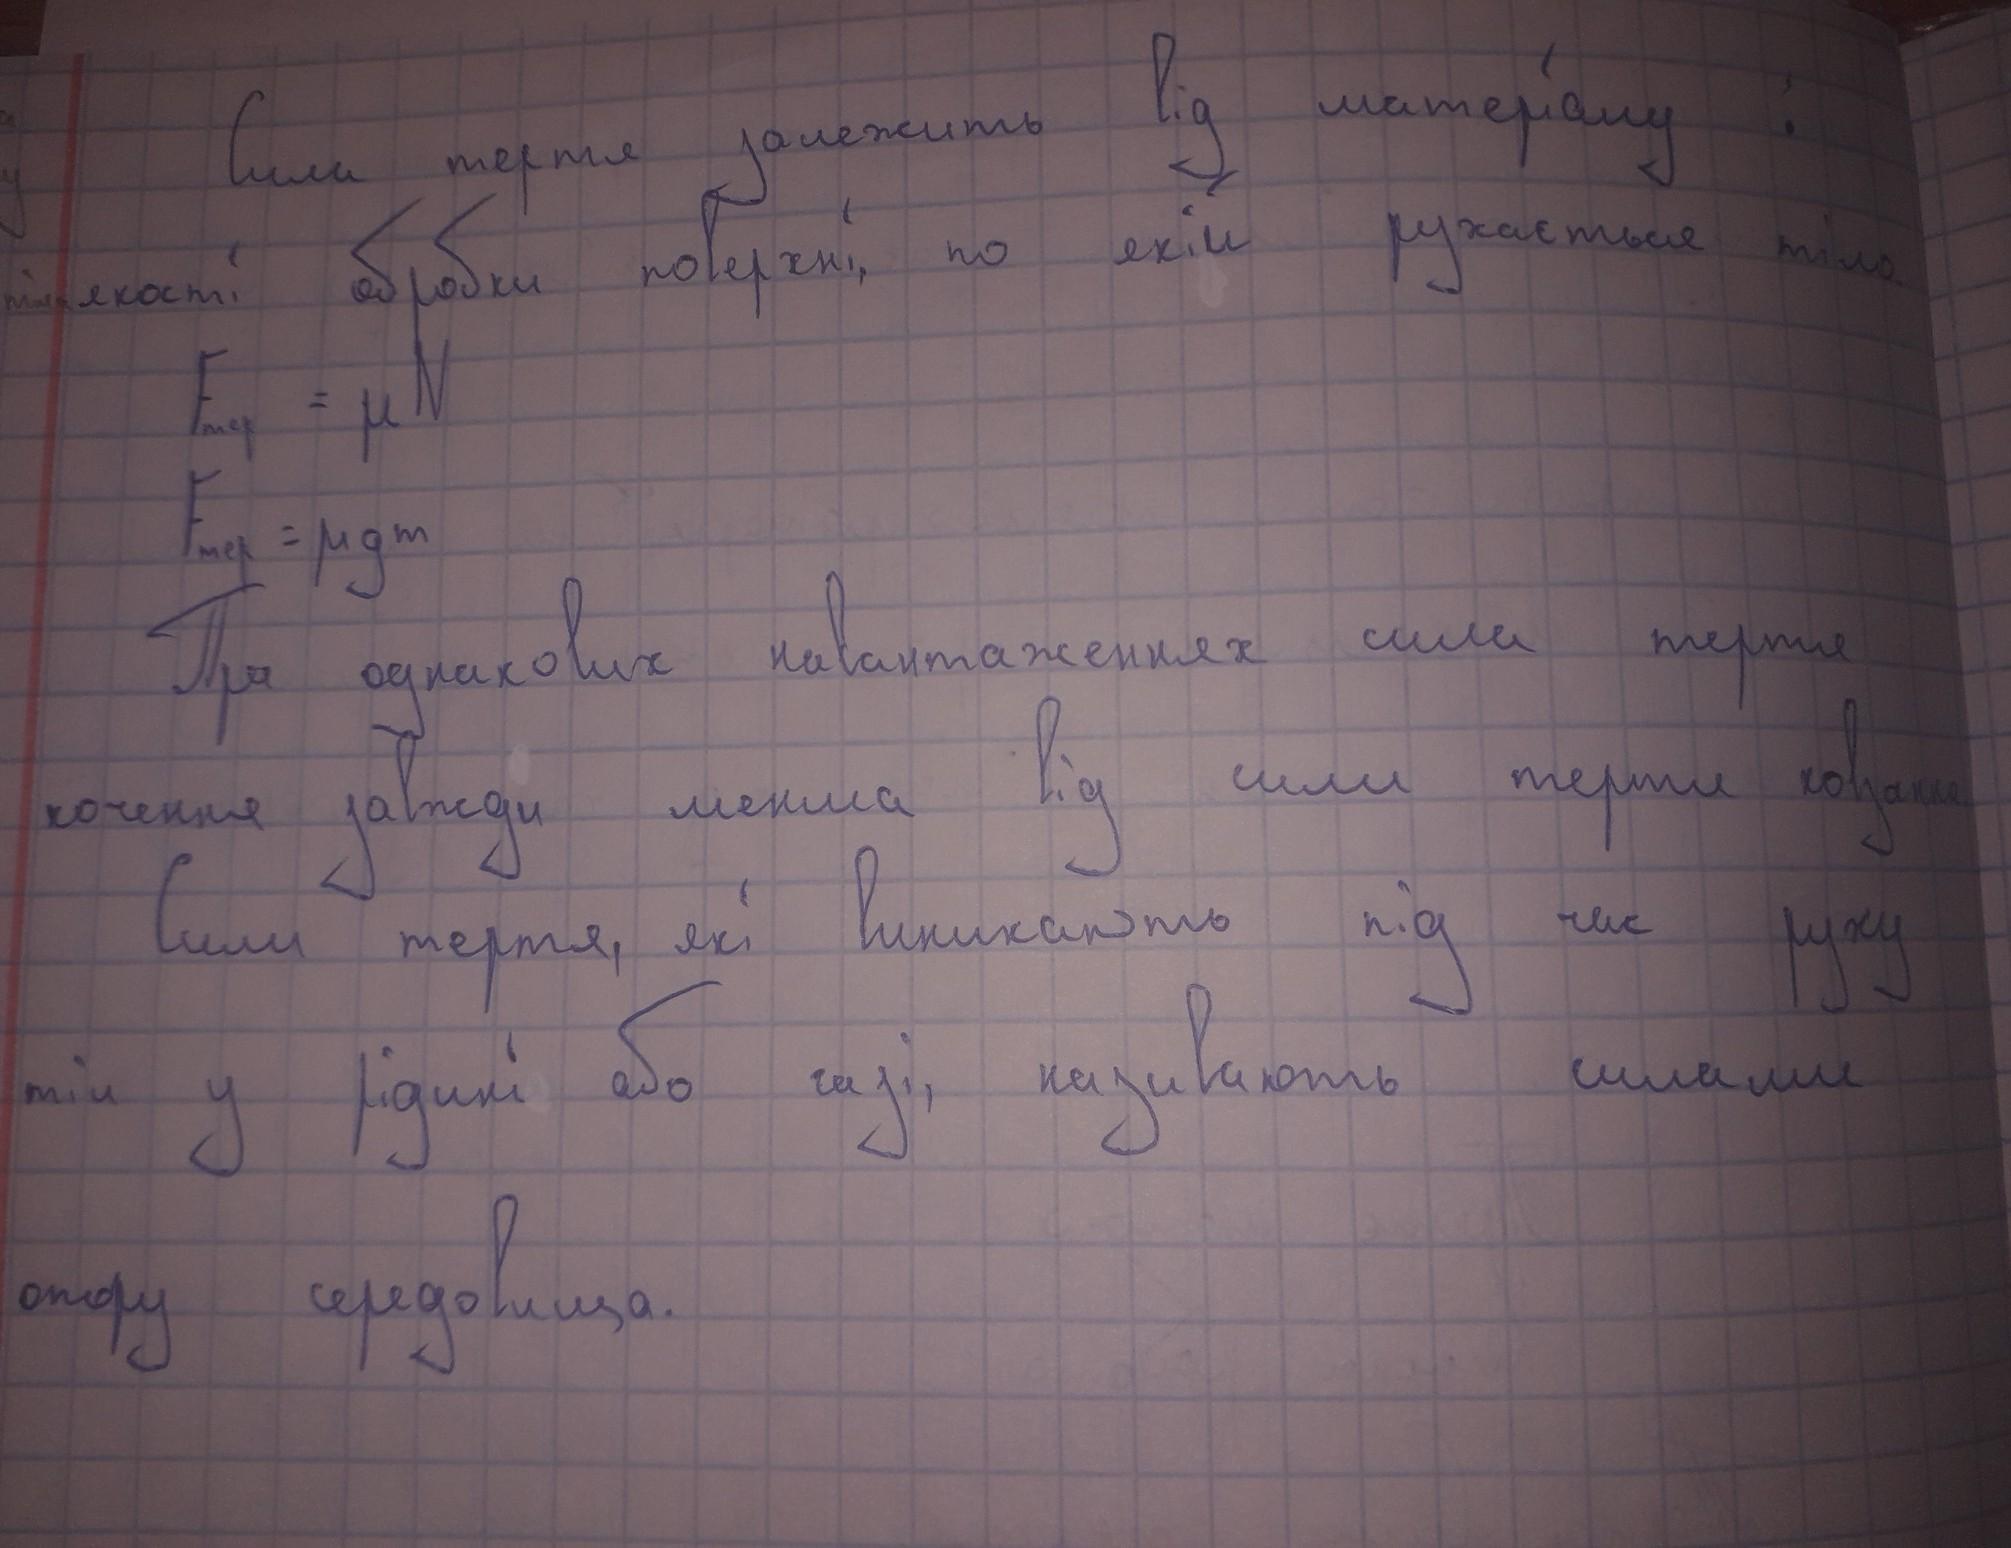 Сили тертя залежить від матеріалу і
якості обробки поверхні, по якій рухається тіло.
Fтер = μN
Fтер = μgm
При однакових навантаженнях сила тертя
кочення завжди менша від сили тертя ковзання
Сили тертя, які виникають під час руху
тіл у рідині або газі, називають силами
опору середовища.